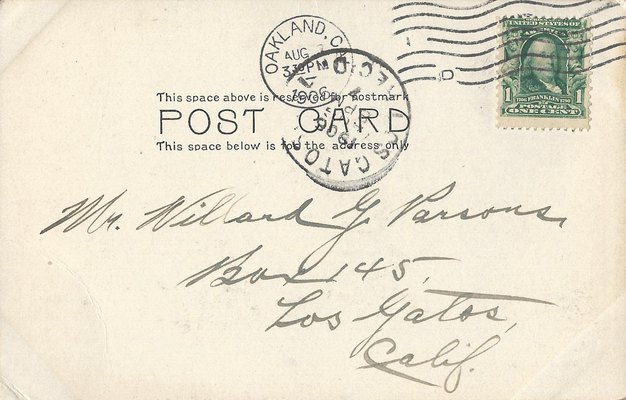 OAKLAND, C
AUG 7
3 30 PM
1906
REC'D
LOS GATOS
1906
D
UNITED STATES OF AMERICA
1 FRANKLIN 1
POSTAGE
ONE CENT
This space above is reserved for postmark
POST CARD
This space below is for the address only
Mr. Willard G. Parsons,
Box 145,
Los Gatos,
Calif.